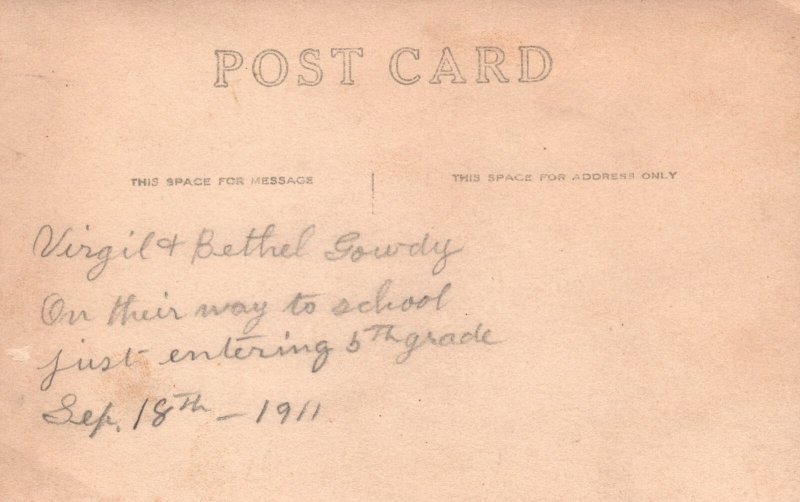 POST CARD
THIS SPACE FOR MESSAGE
THIS SPACE FOR ADDRESS ONLY
Virgil & Bethel Gowdy
On their way to school
just entering 5th grade
Sep. 18th - 1911